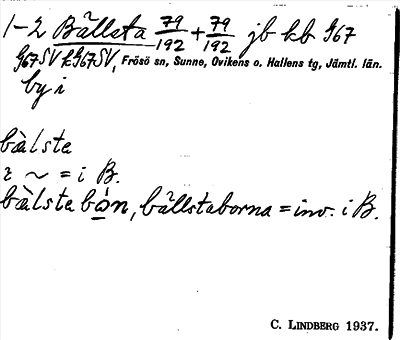 1-2 Bällsta 79/192 + 79/192 jb kb G67
G67SV k G67SV, Frösö sn, Sunne, Ovikens o. Hallens tg, Jämtl. län.
by i
bàlste
ɛ ~ = i B.
bàlsta bòn, bällstaborna = inv. i B.
C. LINDBERG 1937.